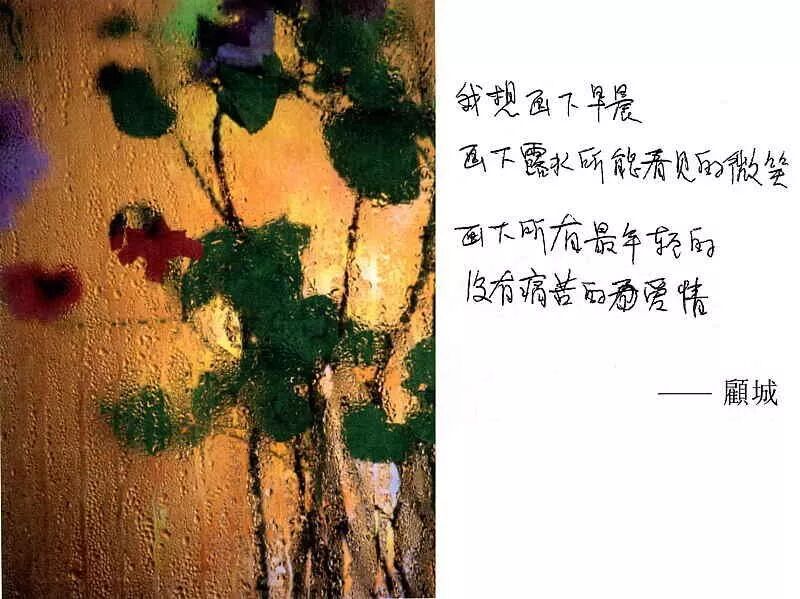 我想画下早晨
画下露水所能看见的微笑
画下所有最年轻的
没有痛苦的爱情
—— 顧城